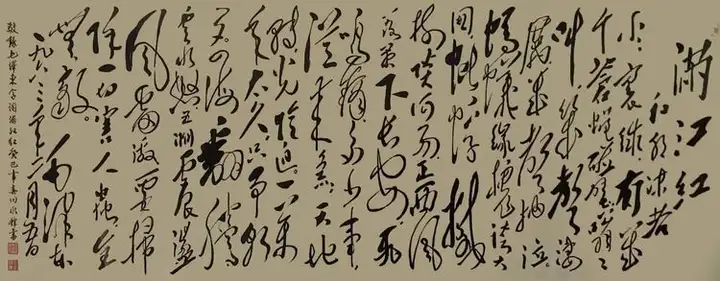 满江红
和郭沫若
小小寰球,有几
个苍蝇碰壁。嗡嗡
叫,几声凄
厉,几声抽泣。
蚂蚁缘槐夸大
国,蚍蜉撼
树谈何易。正西风
落叶下长安,飞
鸣镝。多少事,
从来急。天地
转,光阴迫。一万
年太久,只争朝
夕。四海翻腾
云水怒,五洲震荡
风雷激。要扫
除一切害人虫,全
无敌。毛泽东
一九六三年二月五日
敬录毛泽东 词满江红 癸巳年